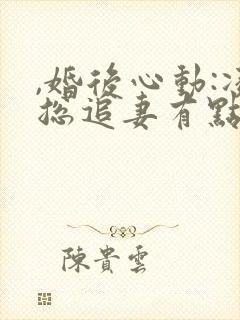 ,婚後心動:凌
總追妻有點
陳貴雲